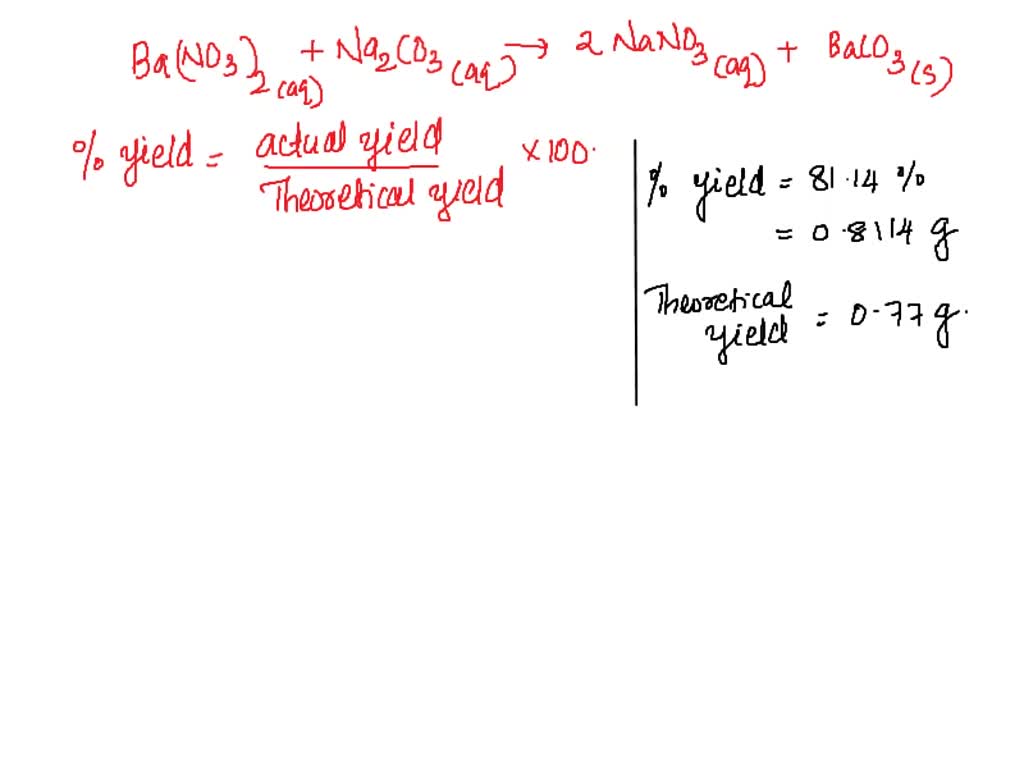 Ba(NO3)2(aq) + Na2CO3(aq) → 2 NaNO3(aq) + BaCO3(s)
% yield = actual yield / Theoretical yield × 100.
% yield = 81.14 %
= 0.8114 g
Theoretical
yield = 0.77 g.